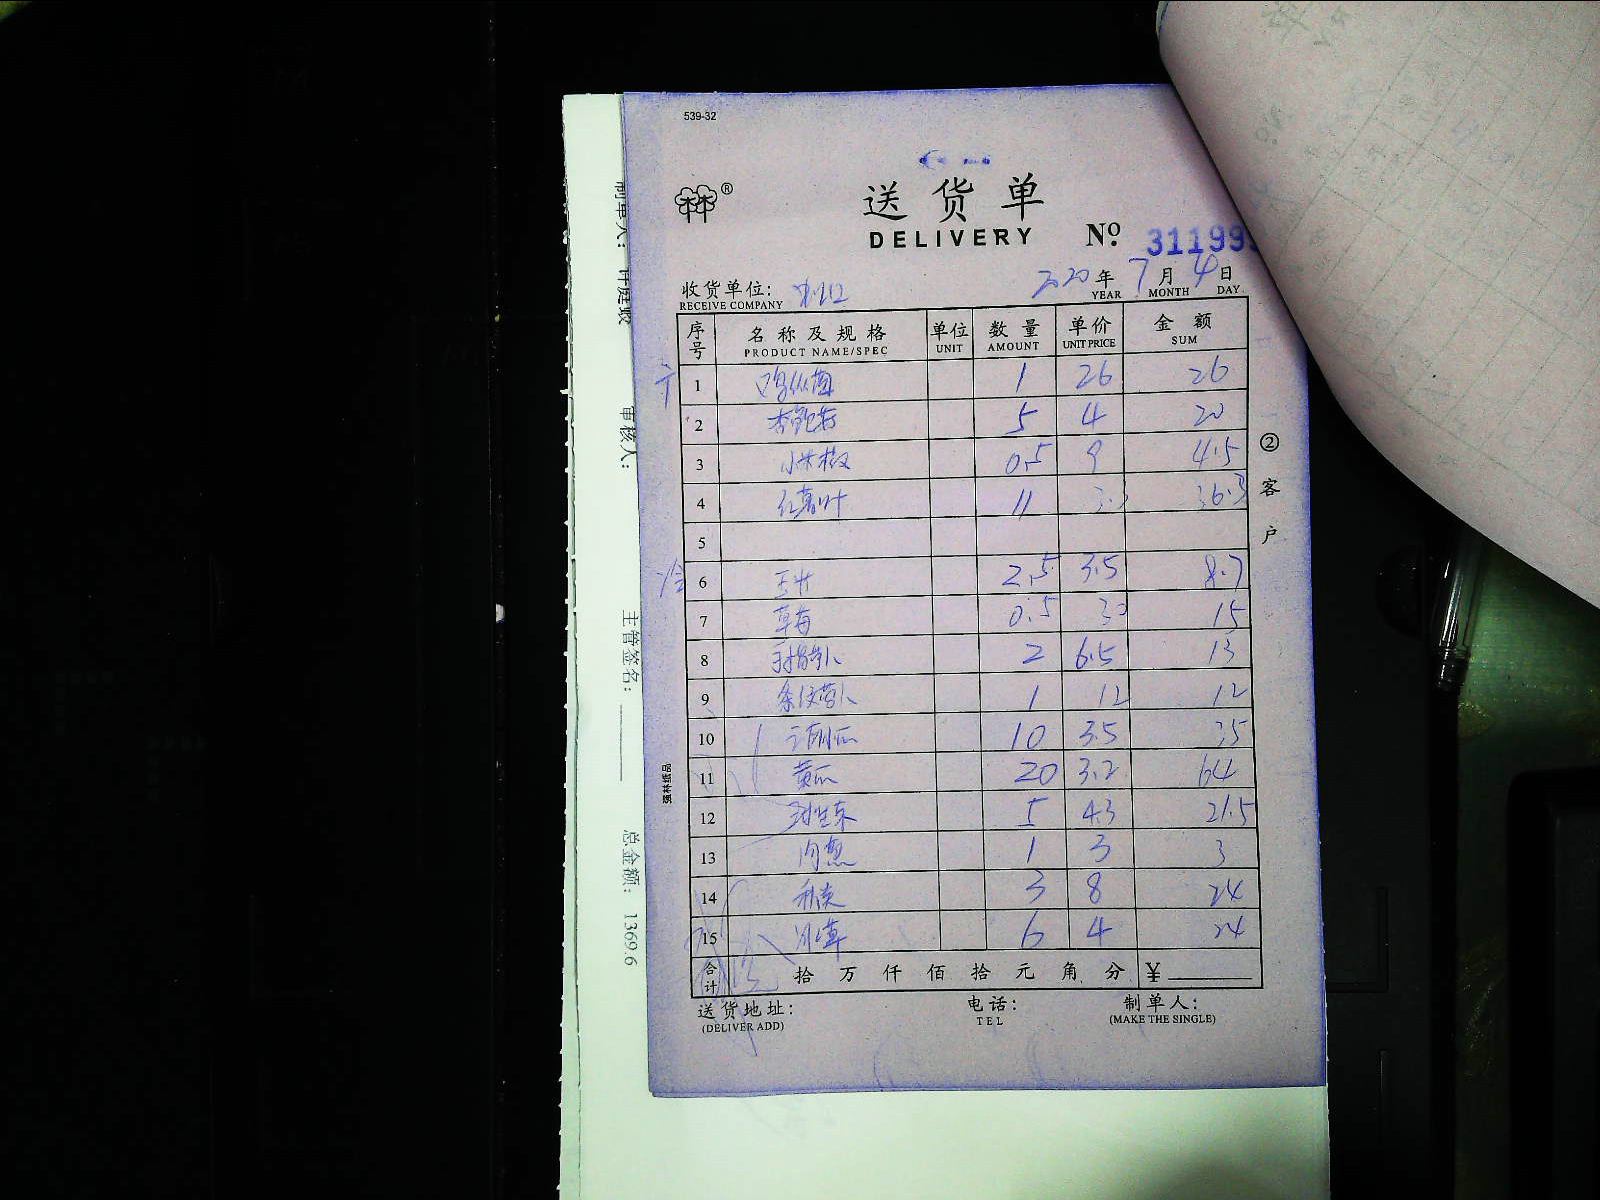 539-32
送货单
DELIVERY
Nº 31199
收货单位: 2020年7月4日
RECEIVE COMPANY YEAR MONTH DAY
序号 名称及规格 单位 数量 单价 金额
PRODUCT NAME/SPEC UNIT AMOUNT UNIT PRICE SUM
1 鸡纵菌 1 26 26
2 杏鲍菇 5 4 20
3 小米椒 0.5 9 4.5
4 红薯叶 11 3.3 36.3
5
6 2.5 3.5 8.7
7 草莓 0.5 30 15
8 2 6.5 13
9 1 12 12
10 10 3.5 35
11 黄瓜 20 3.2 64
12 5 4.3 21.5
13 1 3 3
14 3 8 24
15 6 4 24
合计 拾 万 仟 佰 拾 元 角 分 ¥
送货地址: 电话: 制单人:
(DELIVER ADD) TEL (MAKE THE SINGLE)
②客户
强林纸品
制单人:
审核人:
主管签名:
总金额: 1369.6